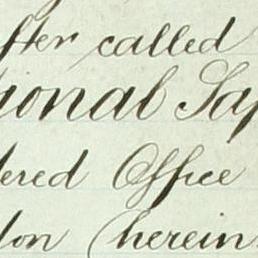 fter called
ional Saf
ered Office
don (herein